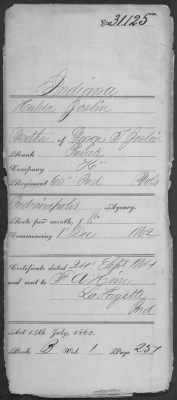 No 31125
Indiana
Hulda Joslin
Mother of George S. Joslin
Rank Private
Company "K"
Regiment 60" Ind Vols
Indianapolis Agency.
Rate per month, 8
Commencing 1" Dec 1862
Certificate dated 24 Sept 1864
and sent to F A
LaFayette
Ind
Act 14th July, 1862.
Book B Vol. 1 Page 257